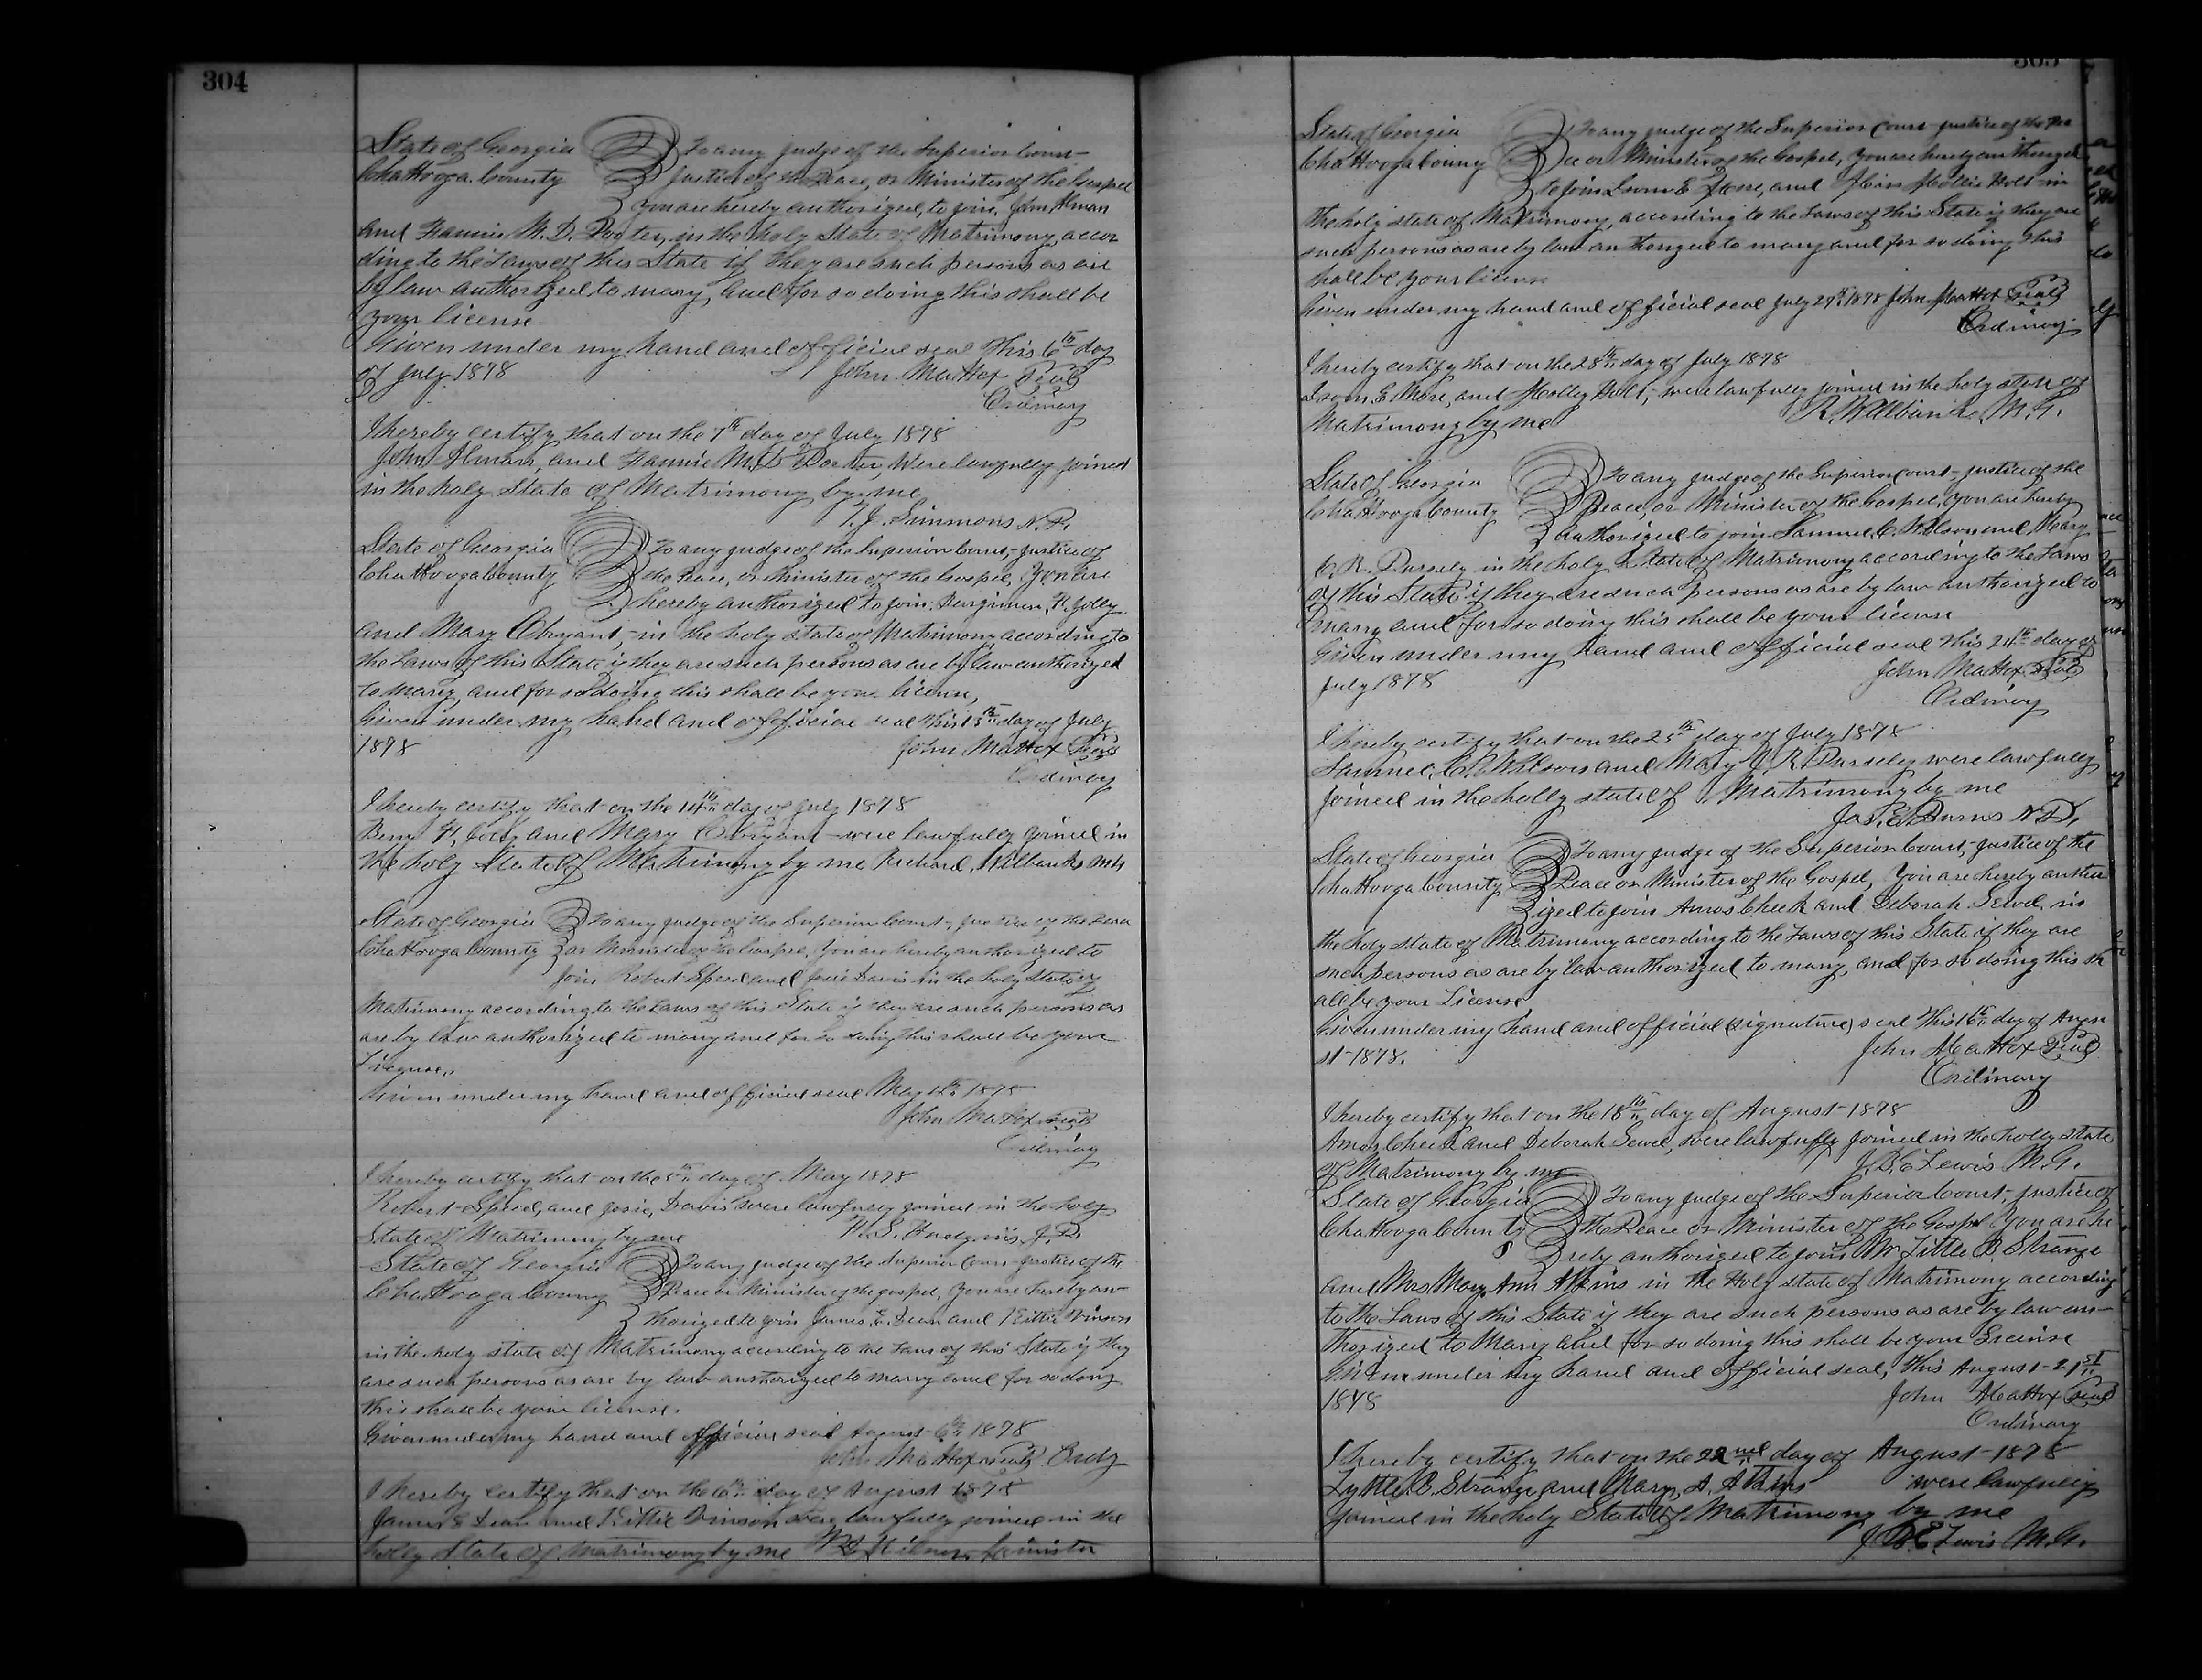 304
State of Georgia To any judge of the Superior Court
Chattooga County justice of the Peace, or Minister of the Gospel
you are hereby authorized, to join, John Alman
and Fannie M. D. Porter, in the holy State of Matrimony, accor
ding to the Laws of this State if they are such persons as are
by law authorized to marry, and for so doing this shall be
your license
Given under my hand and official seal this 6th day
of July 1878 John Mattox Seal
Ordinary
I hereby certify that on the 7th day of July 1878
John Alman, and Fannie M. D. Porter, were lawfully joined
in the holy State of Matrimony by me
T. J. Simmons N. P.
State of Georgia To any judge of the Superior Court, justice of
Chattooga County the Peace, or Minister of the Gospel, You are
hereby authorized to join, F. Jolly
and Mary Obryant, in the holy state of Matrimony, according to
the Laws of this State if they are such persons as are by law authorized
to marry and for so doing this shall be your license,
Given under my hand and official seal this 13th day of July
1878 John Mattox Seal
Ordinary
I hereby certify that on the 14th day of July 1878
Benj F. Jolly and Mary Obryant were lawfully joined in
the holy State of Matrimony by me Richard, Milbanks
State of Georgia To any judge of the Superior Court, justice of the Peace
Chattooga County or Minister of the Gospel, You are hereby authorized to
join Robert Speed and Josie Davis in the holy state of
Matrimony according to the Laws of this State if they are such persons as
are by law authorized to marry and for so doing this shall be your
License,
Given under my hand and official seal May 4th 1878
John Mattox Seal
Ordinary
I hereby certify that on the 5th day of May 1878
Robert Speed, and Josie, Davis were lawfully joined in the holy
State of Matrimony by me J. P.
State of Georgia To any judge of the Superior Court justice of the
Chattooga County Peace or Minister of the gospel, you are hereby au
thorized to join James E. Dean and Kittie Vinson
in the holy state of Matrimony according to the Laws of this State if they
are such persons as are by law authorized to marry and for so doing
this shall be your license.
Given under my hand and official seal August 6th 1878
John Mattox Seal Ordy
I hereby certify that on the 6th day of August 1878
James E Dean and Kittie Vinson were lawfully joined in the
holy State of Matrimony by me Minister
305
State of Georgia To any judge of the Superior Court justice of the Pea
Chattooga County ce or Minister of the Gospel, you are hereby authorized
to join Isom E More, and Miss Mollie Holt in
the holy state of Matrimony, according to the Laws of this State if they are
such persons as are by law authorized to marry and for so doing this
shall be your license
Given under my hand and official seal July 27th 1878 John Mattox Seal
Ordinary
I hereby certify that on the 28th day of July 1878
Isom E More, and Molley Holt, were lawfully joined in the holy state of
Matrimony by me R. M. G.
State of Georgia To any judge of the Superior Court, justice of the
Chattooga County Peace, or Minister of the Gospel, you are hereby
authorized to join Samuel C. Wilson and Mary
R. Pursely in the holy State of Matrimony according to the Laws
of this State if they are such persons as are by law authorized to
marry and for so doing this shall be your license
Given under my hand and official seal this 24th day of
July 1878 John Mattox Seal
Ordinary
I hereby certify that on the 25th day of July 1878
Samuel, C. Wilson and Mary R. Pursely were lawfully
joined in the holly state of Matrimony by me
Jas. E. Burns N. P.
State of Georgia To any judge of the Superior Court, justice of the
Chattooga County Peace or Minister of the Gospel, You are hereby author
ized to join Amos Cheek and Deborah Sewel, in
the holy state of Matrimony according to the Laws of this State if they are
such persons as are by law authorized to marry, and for so doing this sh
all be your License
Given under my hand and official (signature) seal this 16th day of Augu
st 1878. John Mattox Seal
Ordinary
I hereby certify that on the 18th day of August 1878
Amos Cheek and Deborah Sewel, were lawfully joined in the holy state
of Matrimony by me J. B. C Lewis M. G.
State of Georgia To any judge of the Superior Court, justice of
Chattooga County the Peace or Minister of the Gospel You are he
reby authorized to join Mr Little B. Strange
and Mrs Mary Ann Atkins in the Holy state of Matrimony according
to the Laws of this State if they are such persons as are by law au
thorized to Marry and for so doing this shall be your License
Given under my hand and official seal, this August 21st
1848 John Mattox Seal
Ordinary
I hereby certify that on the 22nd day of August 1878
Lyttle. B. Strange and Mary, A. Atkins were lawfully
joined in the holy State of Matrimony by me
J. B. C. Lewis M. G.